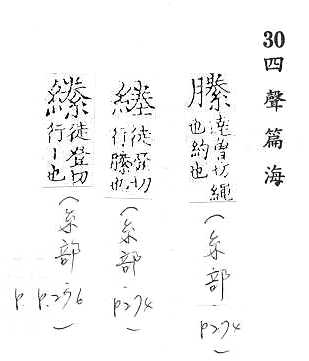 30 四聲篇海
縢 達曾切繩也約也 (糸部) p274
徒登切行縢也 (糸部) p274
徒登切行丨也 (糸部)